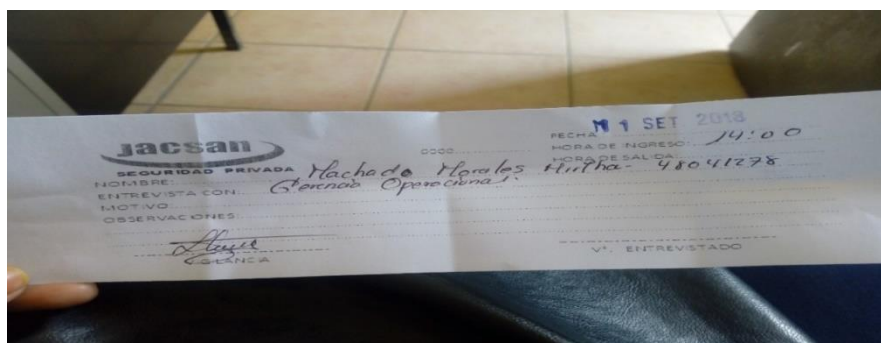 Jacsan
SEGURIDAD PRIVADA
FECHA 11 SET 2018
HORA DE INGRESO: 14:00
HORA DE SALIDA:
NOMBRE: Machado Morales - 48041278
ENTREVISTA CON: Gerencia Operacional.
MOTIVO
OBSERVACIONES:
VIGILANCIA
V°. ENTREVISTADO